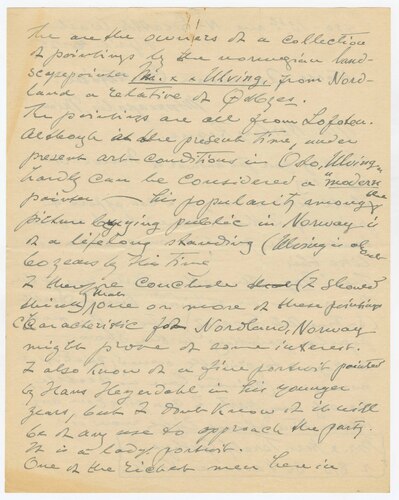 We are the owners of a collection
of paintings by the norwegian land-
scapepainter Mr. x x Ulving, from Nord-
land a relative of
The paintings are all from Lofoten.
Although at the present time, under
present art-conditions in Oslo, Ulving
hardly can be considered a "modern"
painter — his popularity among the
picture buying public in Norway is
of a lifelong standing (Ulving is about
60 years by this time
I therefore conclude (I should
think) that one or more of these paintings
characteristic for Nordland, Norway
might prove of some interest.
I also know of a fine portrait painted
by Hans Heyerdahl in his younger
years, but I don't know if it will
be of any use to approach the party.
It is a lady portrait.
One of the richest men here in